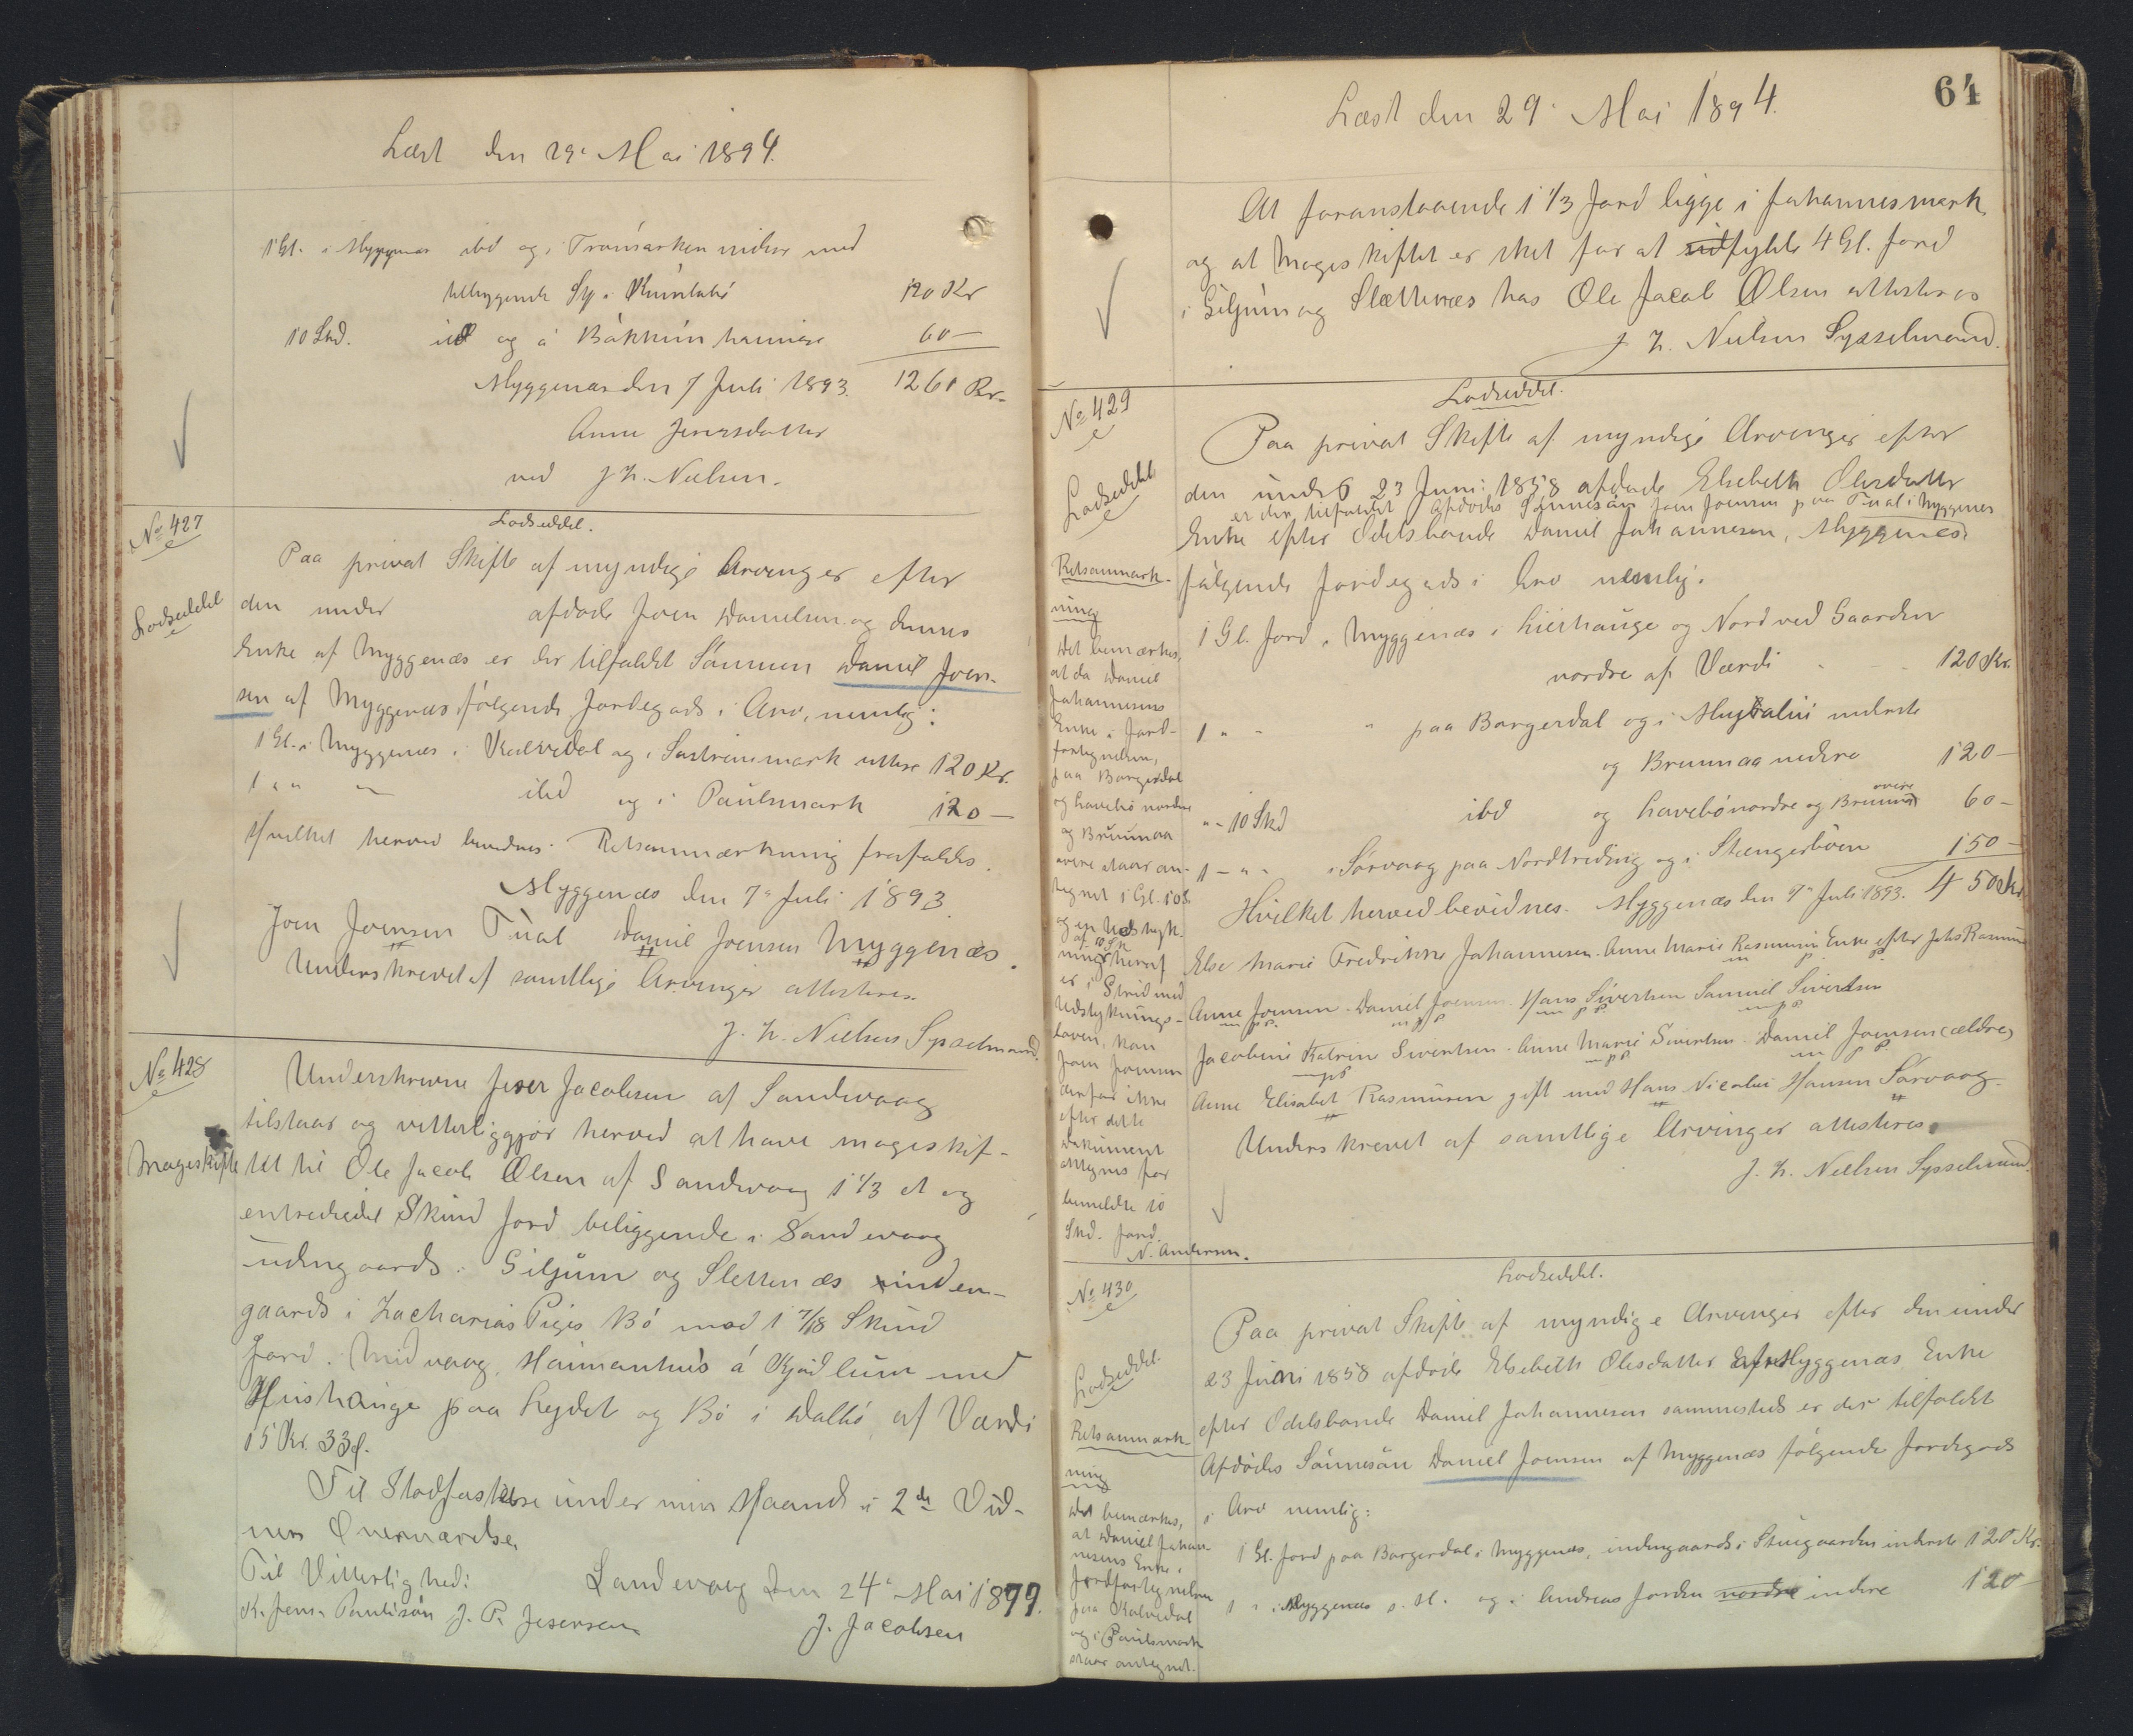 Læst den 29' Mai 1894.
1 Gl. i Myggenæs ibd og i Tromarken nidere med
tilliggende Sp. i 120 Kr
10 Skd. ibd og á Bákkun 60 –
Myggenæs den 7 Juli 1893. 1260 Kr.
Anne Joensdatter
ved J. H. Nielsen.
No 427
Lodseddel.
Lodseddel
Paa privat Skifte af myndige Arvinger efter
den under afdøde Joen Danielsen og dennes
Enke af Myggenæs er der tilfaldet Sønnen Daniel Joen-
sen af Myggenæs følgende Jordegods i Arv, nemlig:
1 Gl. i Myggenæs i Kalvedal og i mark uttere 120 Kr.
1 " " – ibd og i Paulsmark 120 –
Hvilket herved bevidnes. Retsanmærkning frafaldes.
Myggenæs den 7' Juli 1893
Joen Joensen Tual Daniel Joensen Myggenæs.
Underskrevet af samtlige Arvinger attesteres.
J. H. Nielsen Sysselmand.
No 428
Mageskifte
Underskrevne Jeser Jacobsen af Sandevaag
tilstaar og vitterliggjør herved at have mageskif-
tet til Ole Jacob Olsen af Sandevaag 1 1/3 et og
entrediedel Skind Jord beliggende i Sandevaag
udengaards i Giljum og Slettenæs inden-
gaards i Zacharias Piges Bø mod 1 7/18 Skind
Jord i Midvaag, Heimanhus á Kjødlum med
Hushauge paa Hejdet og Bø i Dalbø, af Værdi
15 Kr. 33 Ø.
Til Stadfæstelse under min Haand i 2de Vid-
ners Overværelse
Til Vitterlighed: Sandevaag den 24' Mai 1899.
K. Jens. Paulisøn J. P. Jesersen J. Jacobsen
64
Læst den 29' Mai 1894.
At foranstaaende 1 1/3 Jord ligge i Johannesmark
og at Mageskiftet er sket for at udfylde 4 Gl. Jord
i Giljum og Slættenæs hos Ole Jacob Olsen attesteres
J H. Nielsen Sysselmand.
No 429
Lodseddel.
Lodseddel
Paa privat Skifte af myndige Arvinger efter
den under 23 Juni 1858 afdøde Elsebeth Olesdatter
er der tilfaldet Afdødes Sønnesøn Joen Joensen paa Tual i Myggenæs
Enke efter Odelsbonde Daniel Johannesen, Myggenæs
følgende Jordegods i Arv nemlig:
1 Gl. Jord i Myggenæs i Lierhauge og Nord ved Gaarden
nordre af Værdi 120 Kr.
1 " " " paa Borgerdal og i nederste
og Brunnaa nedre 120 –
" – 10 Skd ibd og Havebø nordre og Brunnaa øvere 60 –
1 – " " i Sørvaag paa Nordtreding og i Stengerbøen 150 –
Hvilket herved bevidnes. Myggenæs den 7' Juli 1893. 450 Kr.
Else Marie Fredrikke Johannesen. Anne Marie Rasmussen Enke efter Johs Rasmussen
m p. p.
Anne Joensen. Daniel Joensen. Hans Sivertsen Samuel Sivertsen
m p p. m p p m p p. m p p
Jacobine Katrine Sivertsen. Anne Marie Sivertsen. Daniel Joensen (ældre)
m p p m p p. m p p.
Anne Elisabet Rasmussen gift med Hans Nicolai Hansen Sørvaag.
Underskrevet af samtlige Arvinger attesteres.
J. H. Nielsen Sysselmand.
Retsanmærk-
ning
Det bemærkes,
at da Daniel
Johannesens
Enke i Jord-
fortegnelsen,
paa Borgerdal
og Havebø nordre
og Brunnaa
øvere staar an-
tegnet 1 Gl. 10 S.
og en Udstyk-
af 10 Sk
ning heraf
er i Strid med
Udstyknings-
loven, kan
Joen Joensen
derfor ikke
efter dette
Dokument
antegnes for
bemeldte 10
Skd. Jord.
N. Andersen.
No 430
Lodseddel.
Lodseddel
Paa privat Skifte af myndige Arvinger efter den under
23 Juni 1858 afdøde Elsebeth Olesdatter af Myggenæs Enke
efter Odelsbonde Daniel Johannesen sammesteds er der tilfaldet
Afdødes Sønnesøn Daniel Joensen af Myggenæs følgende Jordegods
i Arv nemlig:
1 Gl. Jord paa Borgerdal i Myggenæs, indengaards i Stuegaarden inderste 120 Kr.
1 " i Myggenæs s. St. og i Andreas Jorden nordre indere 120 –
Retsanmærk-
ning
Det bemærkes,
at Daniel Johan-
nesens Enke i
Jordfortegnelsen
paa Kalvedal
og i Paulsmark
staar antegnet